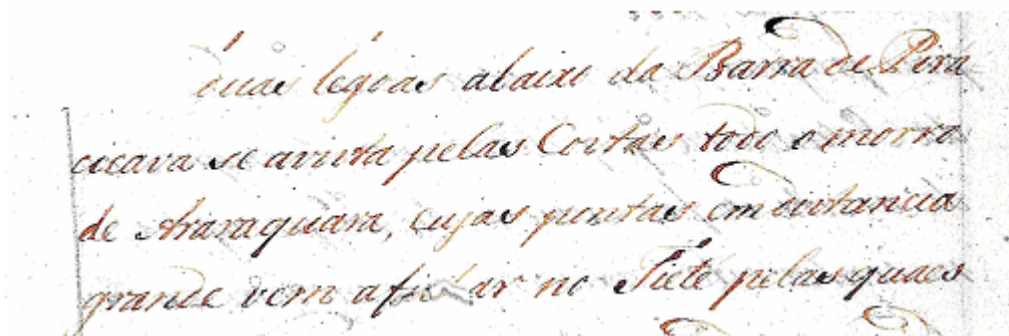 duas legoas abaixo da Barra de Pira
cicava se avista pelas Costas todo o morro
de Araraquara, cujas pontas em distancia
grande vem afinar no Tieté pelas quaes